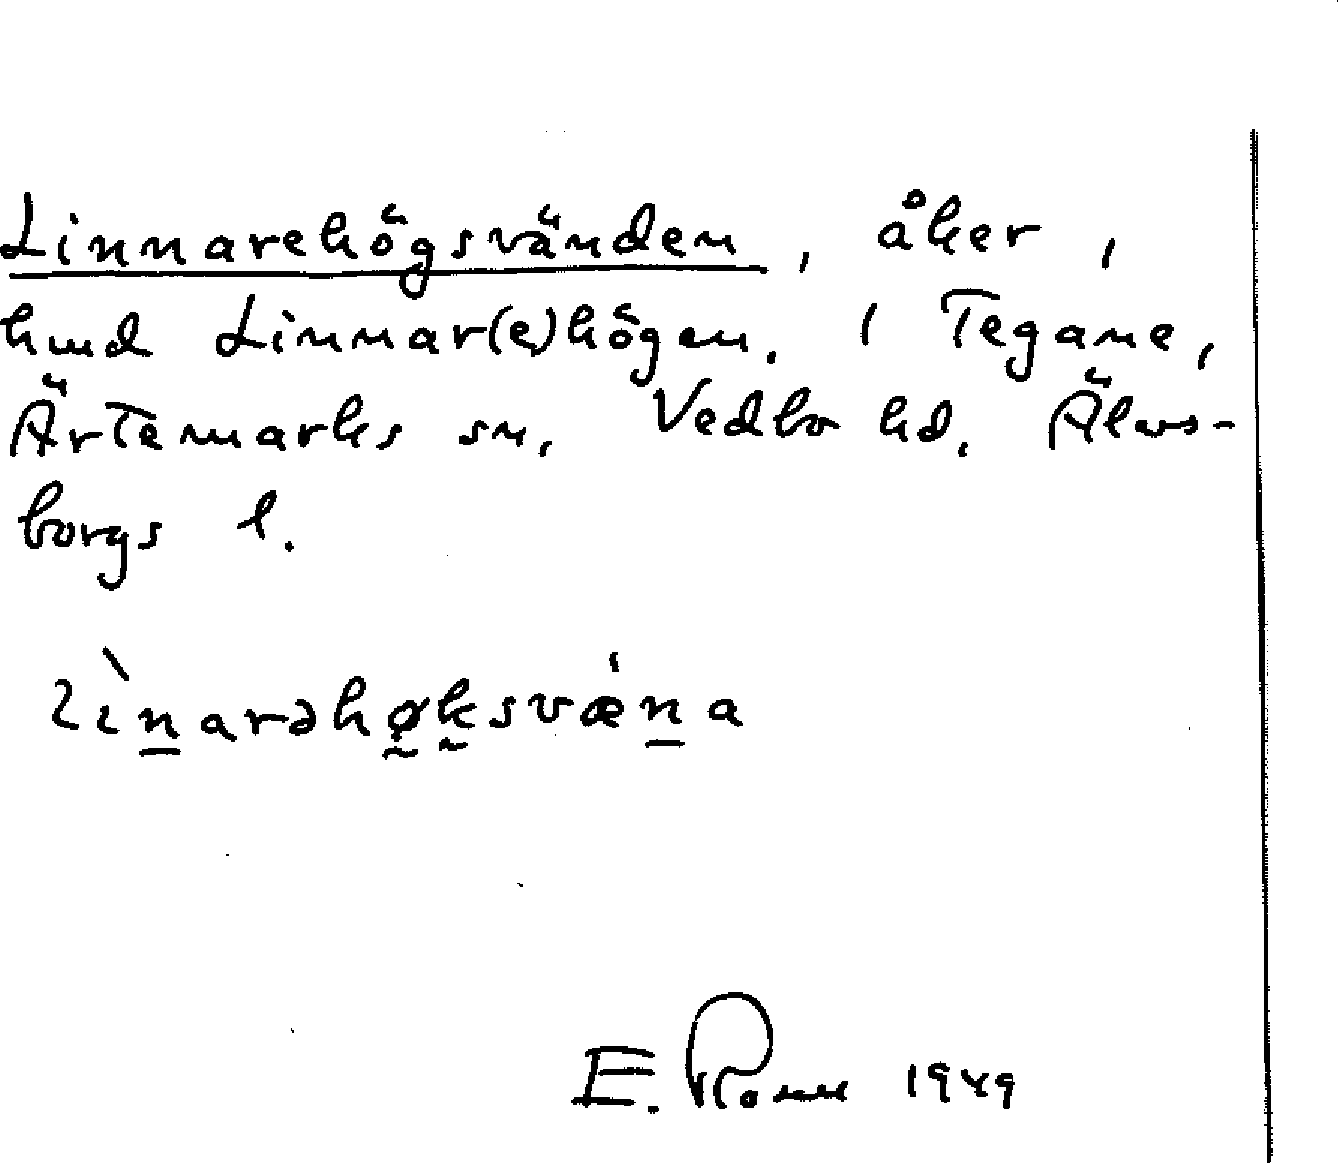 Linnarehögsvänden, åker,
hmd Linnar(e)högen. / Tegane,
Ärtemarks sn, Vedbo hd. Älvs-
borgs l.
lìnarəhøksvæ̍na
E. 1949